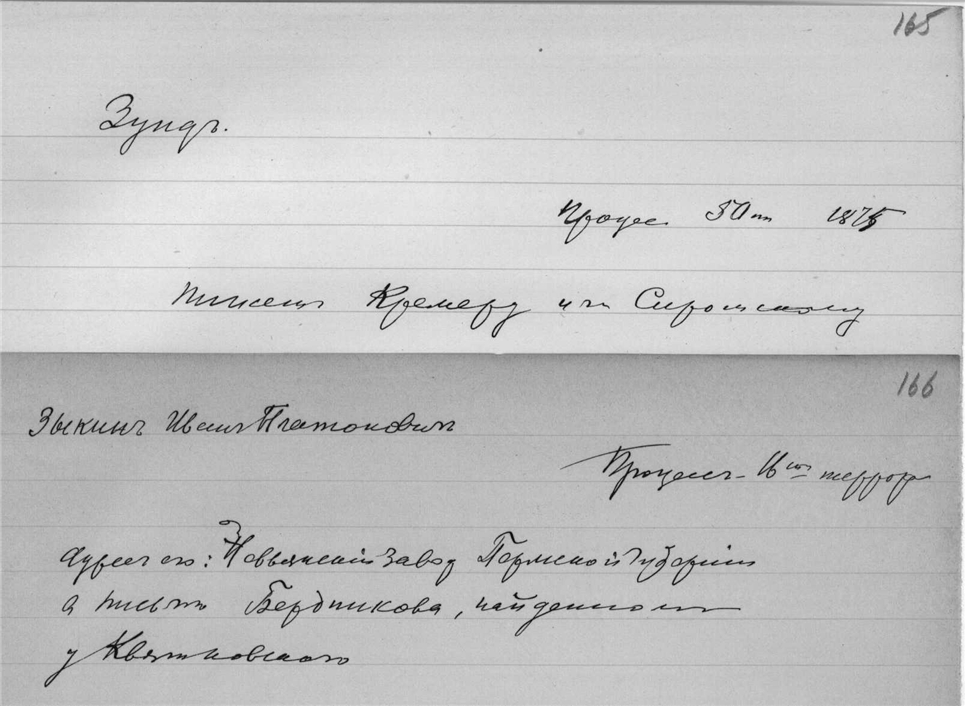 165
Зундъ.
Процес. 50ти 1875
Кремеру и Сиротскому
166
Зыкинъ Иванъ Платоновичъ
Процессъ 16ти террор
Адресъ его: Невьянскій Завод Пермской Губерніи
в письмѣ Бердникова, найденномъ
у Квятковского